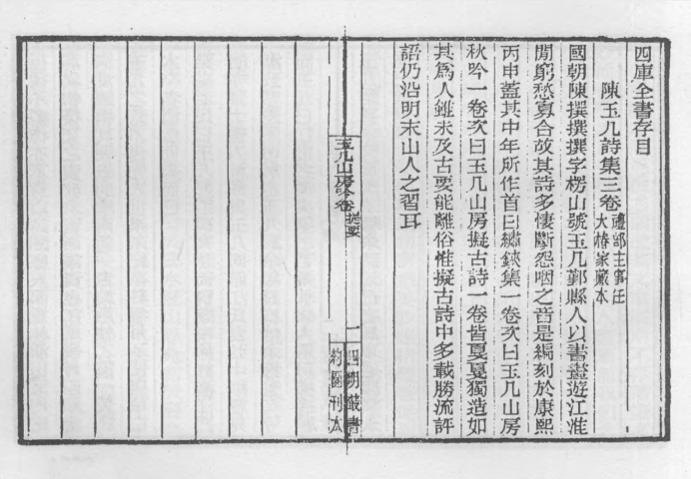 四庫全書存目
陳玉几詩集三卷
禮部主事任
大椿家藏本
國朝陳撰撰撰字楞山號玉几鄞縣人以書畫遊江淮
閒窮愁寡合故其詩多悽斷怨咽之音是編刻於康熙
丙申蓋其中年所作首曰繡鋏集一卷次曰玉几山房
秋吟一卷次曰玉几山房擬古詩一卷皆戛戛獨造如
其爲人雖未及古要能離俗惟擬古詩中多載勝流評
語仍沿明末山人之習耳
玉几山房吟卷 提要
一
四明叢書
約園刊本